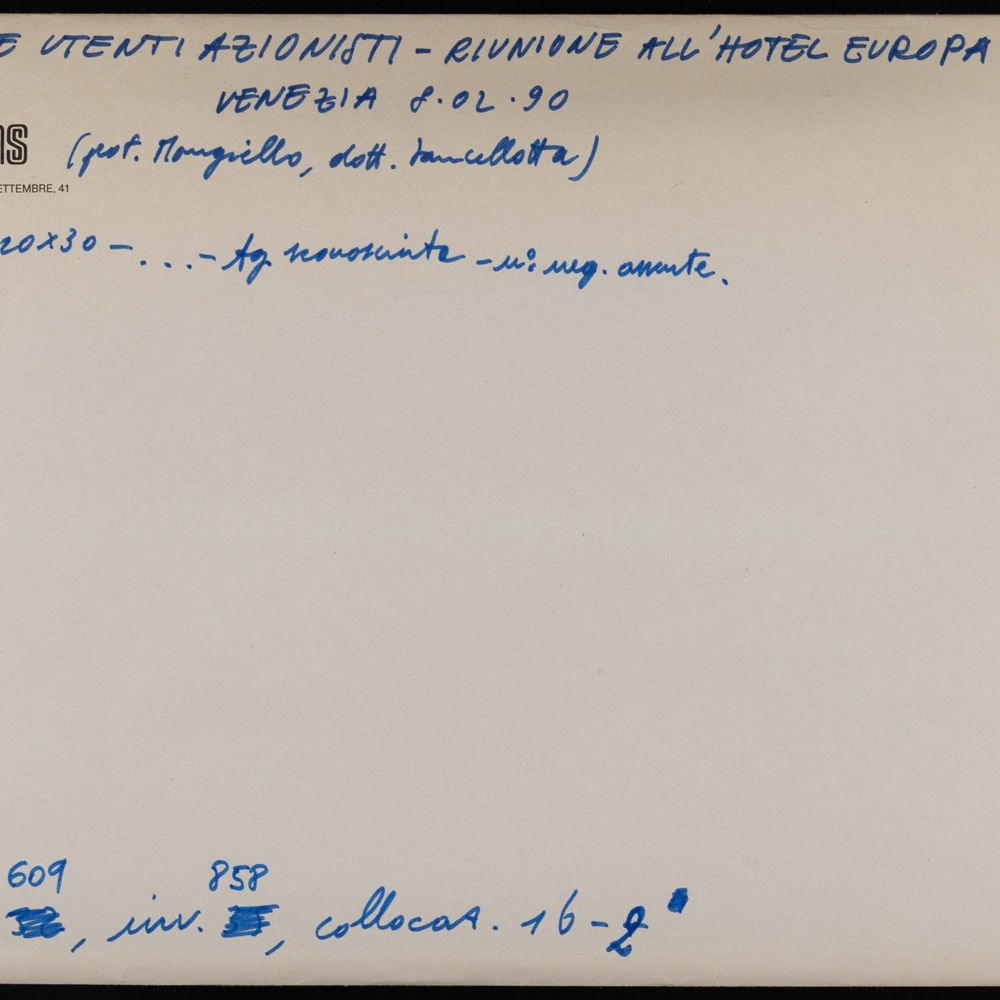 E UTENTI AZIONISTI - RIUNIONE ALL'HOTEL EUROPA
VENEZIA 8.02.90
(prof. Mongiello, dott. Lancellotta)
ETTEMBRE, 41
20x30 - ... - Ag sconosciuta - n° neg. assente.
609 858
, inv. , collocaz. 16 - 2